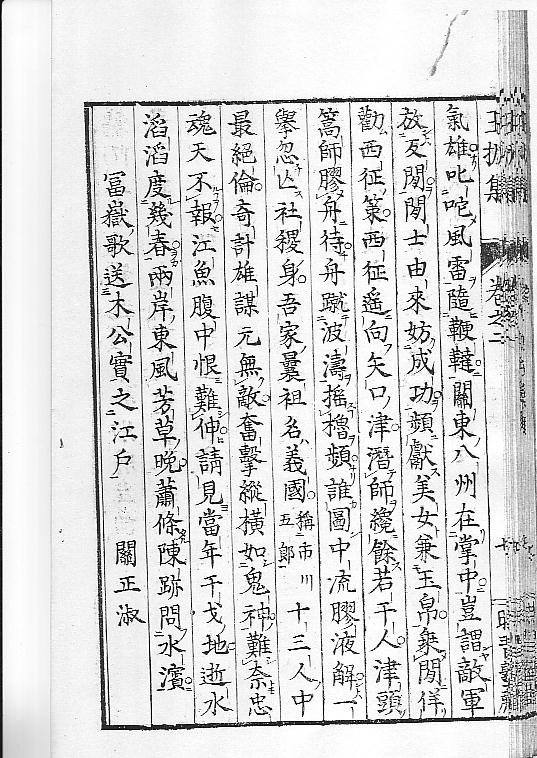 氣雄叱咤風雷隨鞭韃關東八州在掌中豈謂敵軍
放反閒閒士由來妨成功頻獻美女兼玉帛乘閒佯
勸西征策西征遙向矢口津潛師纔餘若干人津頭
篙師膠舟待舟蹴波濤搖櫓頻誰圖中流膠液解一
擧忽亾社稷身吾家曩祖名義國稱市川五郎十三人中
最絕倫奇計雄謀元無敵奮擊縱橫如鬼神難奈忠
魂天不報江魚腹中恨難伸請見當年干戈地逝水
滔滔度幾春兩岸東風芳草晚蕭條陳跡問水濱
富嶽歌送木公實之江戶 關正淑
卷之二